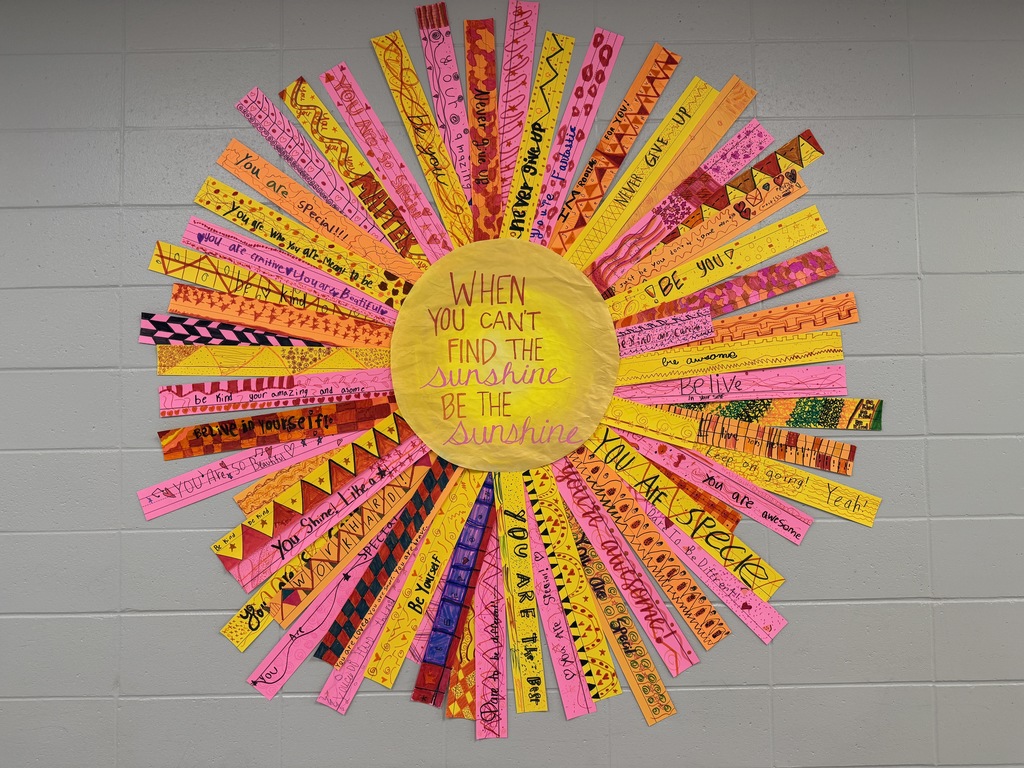 WHEN
YOU CAN'T
FIND THE
sunshine
BE THE
sunshine
be you
Never give up
never give up
you're Fantastic
FOR YOU!
NEVER GIVE UP
BE YOU
be awesome
Belive
in your self
Keep on going! Yeah!
You are awesome
YOU ARE SPECIEL
to Be Different
you're awesome!
You are special
You Are
YOU ARE The Best
Dare to be different!
Be Yourself
You are Loved
You Are
you
You Shine! Like a
Be kind
YOU ARE SO
Beautiful
BELIVE in YOURSELF
be kind your amazing and asome
kind
You are cmitive You are Beatiful
You are who you are meant to be
You are special!!!
MATTER
YOU Are Special